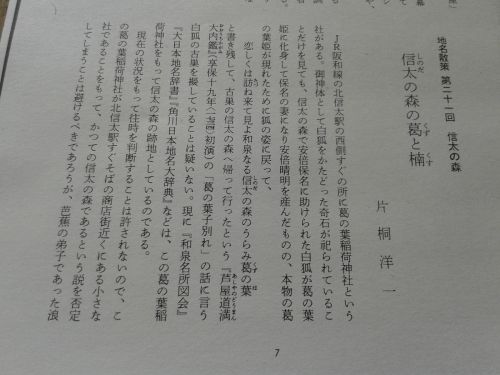 地名散策 第二十一回 信太の森
信太の森の葛と楠
しのだ
くず
くす
片桐洋一
JR阪和線の北信太駅の西側すぐの所に葛の葉稲荷神社という
社がある。御神体として白狐をかたどった奇石が祀られているこ
とだけを見ても、信太の森で安倍保名に助けられた白狐が葛の葉
姫に化身して保名の妻になり安倍晴明を産んだものの、本物の葛
の葉姫が現れたために狐の姿に戻って、
恋しくは訪ね来て見よ和泉なる信太の森のうらみ葛の葉
しのだ
くず
は
と書き残して、古巣の信太の森へ帰って行ったという『芦屋道満
あしやのどうまん
大内鑑』(享保十九年〈一七三四〉初演)の「葛の葉子別れ」の話に言う
おおうちかがみ
白狐の古巣を擬していることは疑いない。現に『和泉名所図会』
『大日本地名辞書』『角川日本地名大辞典』などは、この葛の葉稲
荷神社をもって信太の森の跡地としているのである。
現在の状況をもって往時を判断することは許されないので、こ
の葛の葉稲荷神社が北信太駅すぐそばの商店街近くにある小さな
社であることをもって、かつての信太の森であるという説を否定
してしまうことは避けるべきであろうが、芭蕉の弟子であった浪
7